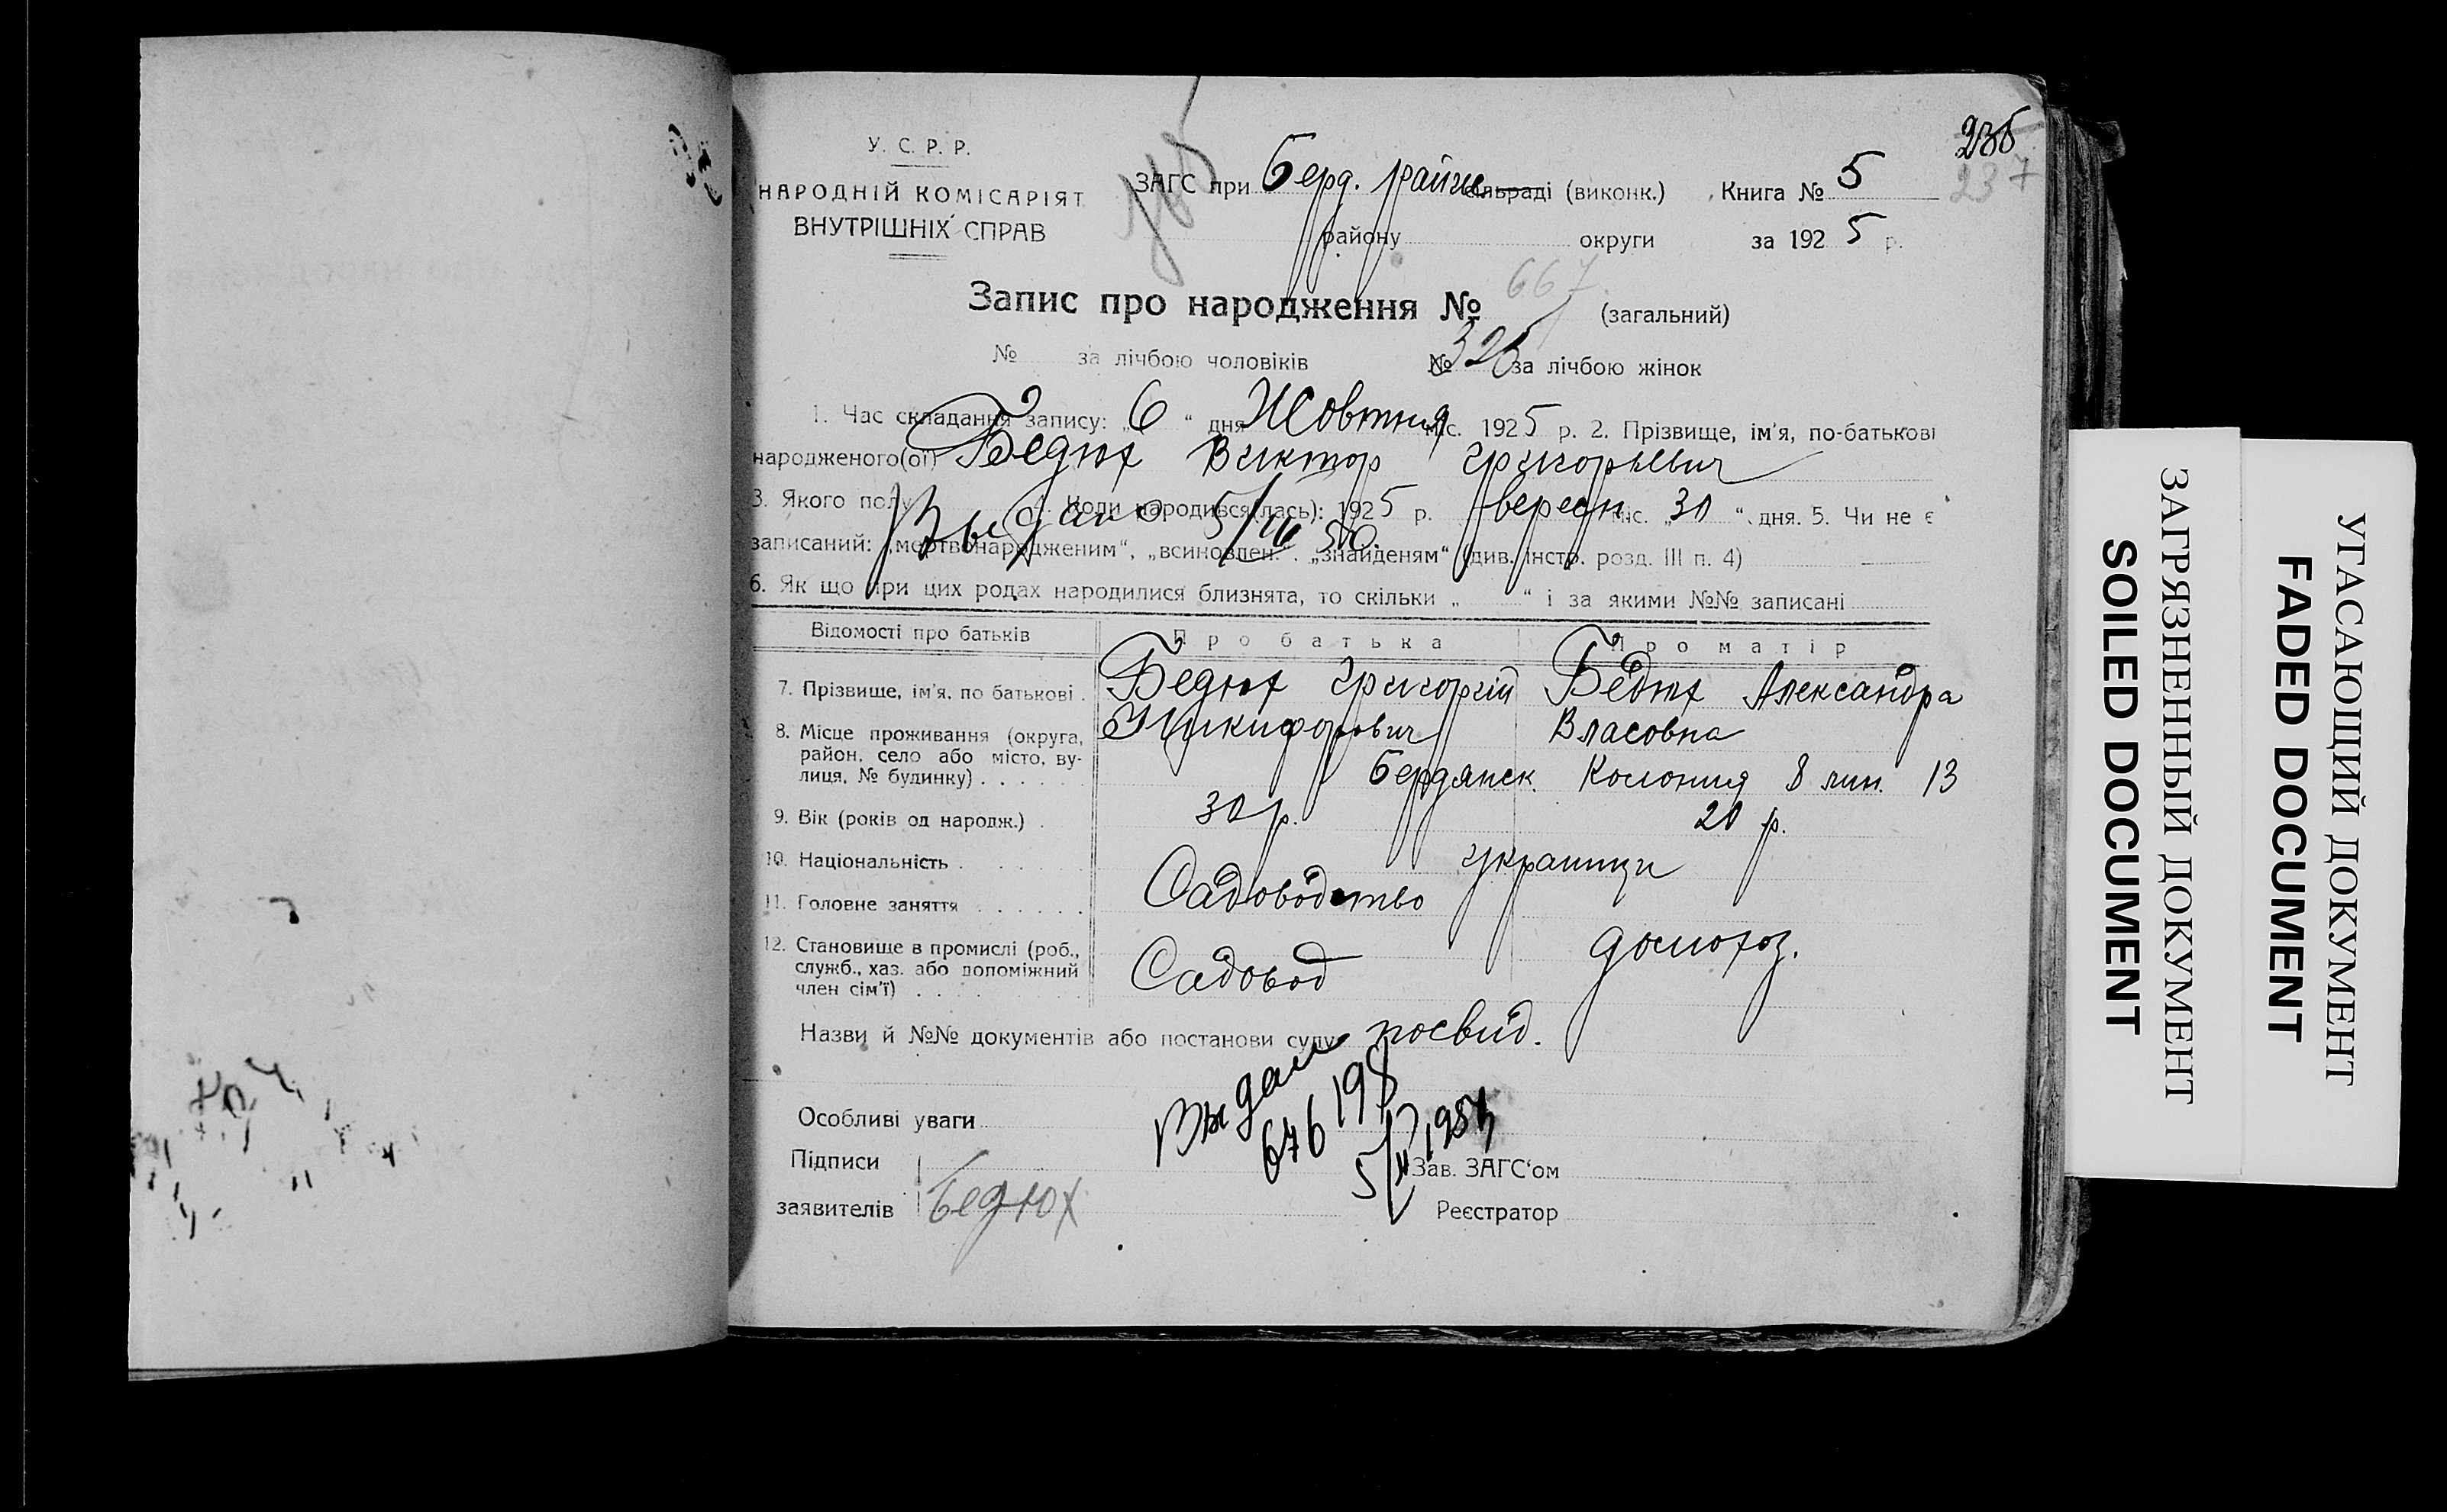 235
237
У. С. Р. Р.
НАРОДНІЙ КОМІСАРІЯТ
ВНУТРІШНІХ СПРАВ
ЗАГС при Берд. райви сільраді (виконк.) Книга № 5
району округи за 1925 р.
Запис про народження № 667 (загальний)
№ за лічбою чоловіків № 325 за лічбою жінок
1. Час складання запису: „6“ дня Жовтня міс. 1925 р. 2. Прізвище, ім'я, по-батькові
народженого(ої) Бедюх Виктор Григорьевич
3. Якого полу 4. Коли народився(лась): 1925 р. вересн. міс. „30“ дня. 5. Чи не є
Выдано 5/
записаний: „мертвонародженим“, „всиновлен.“. „знайденям“ (див. інстр. розд. III п. 4)
6. Як що при цих родах народилися близнята, то скільки „ “ і за якими №№ записані
Відомості про батьків Про батька Про матір
7. Прізвище, ім'я, по батькові. Бедюх Григорий Бедюх Александра
Никифорович Власовна
8. Місце проживання (округа,
район, село або місто, ву-
лиця, № будинку) . . . . . Бердянск. Колония 8 лин. 13
9. Вік (років од народж.) . 30 р. 20 р.
10. Національність . . . . . . украинци
11. Головне заняття . . . . . . Садоводство
12. Становище в промислі (роб.,
служб., хаз. або допоміжний
член сім'ї) . . . . Садовод домохоз.
Назви й №№ документів або постанови суду посвид.
Выдан
676198
5/II 1954
Особливі уваги
Підписи Зав. ЗАГС‘ом
заявителів Бедюх Реєстратор
ЗАГРЯЗНЕННЫЙ ДОКУМЕНТ
SOILED DOCUMENT
УГАСАЮЩИЙ ДОКУМЕНТ
FADED DOCUMENT